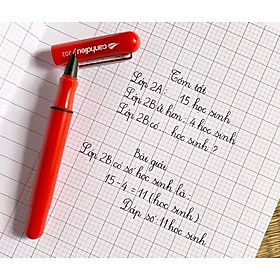 canhdieu 202
Tóm tắt
Lớp 2A: 15 học sinh
Lớp 2B ít hơn: 4 học sinh
Lớp 2B có ... học sinh ?
Bài giải
Lớp 2B có số học sinh là:
15 - 4 = 11 (học sinh)
Đáp số: 11 học sinh